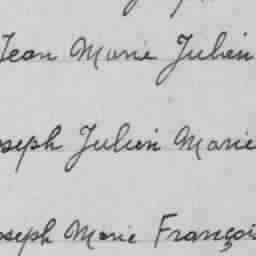 Jean Marie Julien
oseph Julien Marie
oseph Marie Françoi